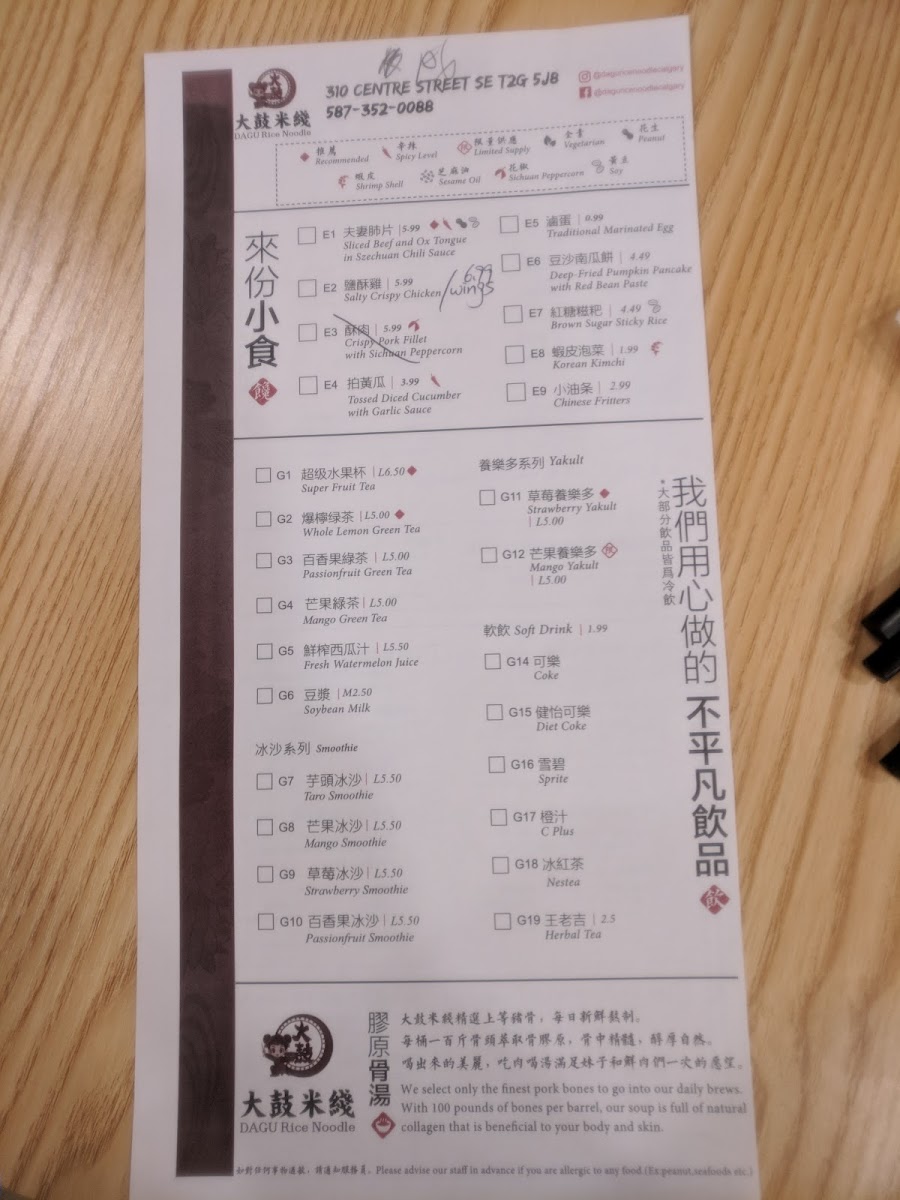 大鼓米綫
DAGU Rice Noodle
310 CENTRE STREET SE T2G 5J8
587-352-0088
@daguricenoodlecalgary
@daguricenoodlecalgary
推薦 Recommended
辛辣 Spicy Level
限量供應 Limited Supply
全素 Vegetarian
花生 Peanut
蝦皮 Shrimp Shell
芝麻油 Sesame Oil
花椒 Sichuan Peppercorn
黃豆 Soy
來份小食
饞
E1 夫妻肺片 | 5.99
Sliced Beef and Ox Tongue
in Szechuan Chili Sauce
E2 鹽酥雞 | 5.99
Salty Crispy Chicken / wings 6.99
E3 酥肉 | 5.99
Crispy Pork Fillet
with Sichuan Peppercorn
E4 拍黃瓜 | 3.99
Tossed Diced Cucumber
with Garlic Sauce
E5 滷蛋 | 0.99
Traditional Marinated Egg
E6 豆沙南瓜餅 | 4.49
Deep-Fried Pumpkin Pancake
with Red Bean Paste
E7 紅糖糍粑 | 4.49
Brown Sugar Sticky Rice
E8 蝦皮泡菜 | 1.99
Korean Kimchi
E9 小油条 | 2.99
Chinese Fritters
G1 超级水果杯 | L6.50
Super Fruit Tea
G2 爆檸绿茶 | L5.00
Whole Lemon Green Tea
G3 百香果綠茶 | L5.00
Passionfruit Green Tea
G4 芒果綠茶 | L5.00
Mango Green Tea
G5 鮮榨西瓜汁 | L5.50
Fresh Watermelon Juice
G6 豆漿 | M2.50
Soybean Milk
冰沙系列 Smoothie
G7 芋頭冰沙 | L5.50
Taro Smoothie
G8 芒果冰沙 | L5.50
Mango Smoothie
G9 草莓冰沙 | L5.50
Strawberry Smoothie
G10 百香果冰沙 | L5.50
Passionfruit Smoothie
養樂多系列 Yakult
G11 草莓養樂多
Strawberry Yakult
| L5.00
G12 芒果養樂多
Mango Yakult
| L5.00
軟飲 Soft Drink | 1.99
G14 可樂
Coke
G15 健怡可樂
Diet Coke
G16 雪碧
Sprite
G17 橙汁
C Plus
G18 冰紅茶
Nestea
G19 王老吉 | 2.5
Herbal Tea
我們用心做的 不平凡飲品
飲
*大部分飲品皆爲冷飲
大鼓
大鼓米綫
DAGU Rice Noodle
膠原骨湯
大鼓米綫精選上等豬骨，每日新鮮熬制。
每桶一百斤骨頭萃取骨膠原，骨中精髓，醇厚自然。
喝出來的美麗，吃肉喝湯滿足妹子和鮮肉們一次的慾望。
We select only the finest pork bones to go into our daily brews.
With 100 pounds of bones per barrel, our soup is full of natural
collagen that is beneficial to your body and skin.
如對任何事物過敏，請通知服務員。Please advise our staff in advance if you are allergic to any food (Ex:peanut,seafoods etc.)